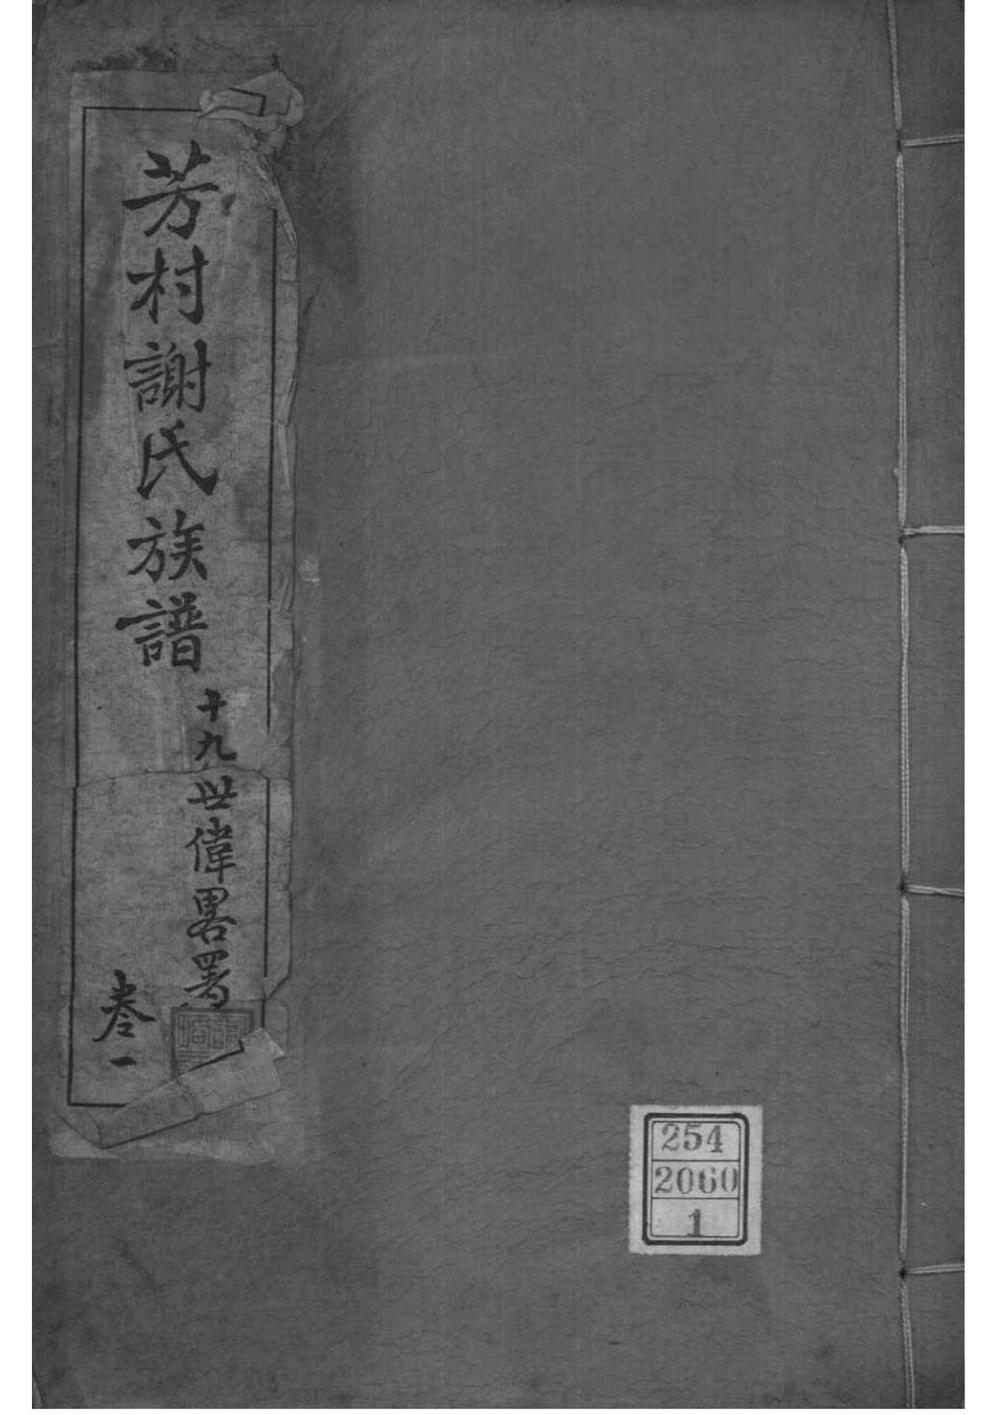 芳村謝氏族譜
十九世偉畧署
卷一
254
2060
1